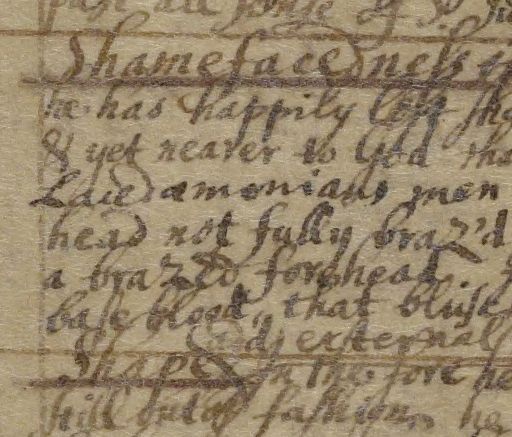 past all sense of
Shamefacedness
he has happily lost
& yet nearer to God
Lacedæmonians men
head not fully braz'd
a brazed forehead
base blood, that blush
external
Shape in the fore
still out of fashion, he